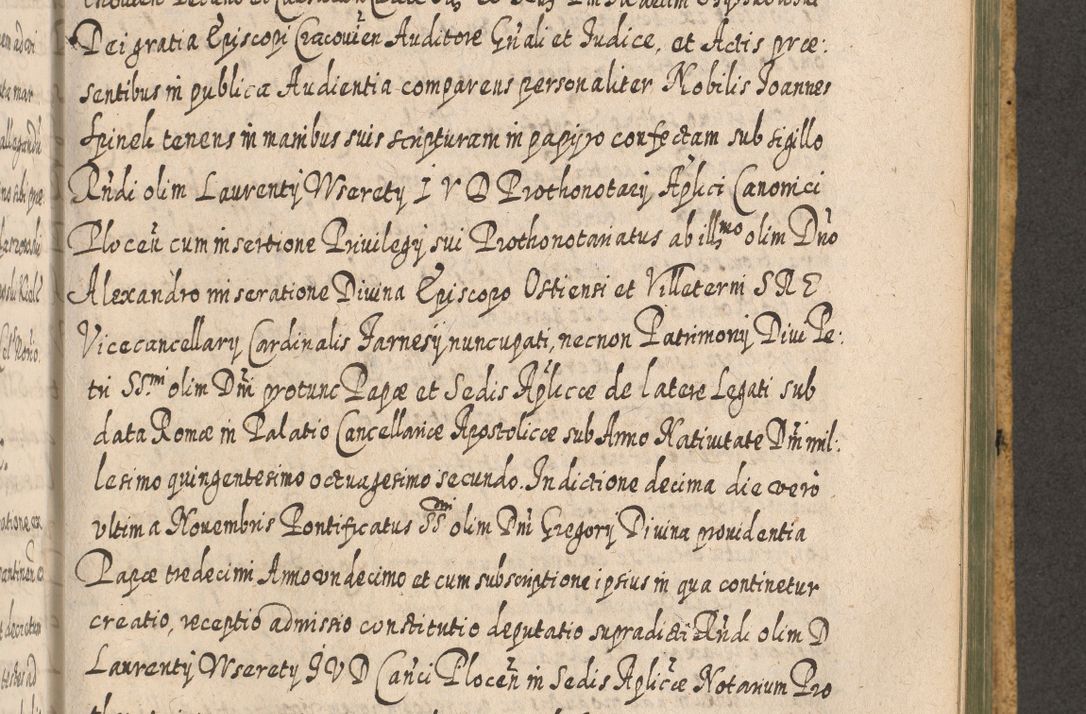 Dei gratia Episcopi Cracouien̄ Auditore Gn̄ali et Judice, et Actis præ:
sentibus in publica Audientia comparens personaliter Nobilis Joannes
Spinek tenens in manibus suis scripturam in papyro confectam sub sigillo
Rn̄di olim Laurentij Wserety I V D Prothonotarij Aplici Canonici
Plocen̄ cum insertione Privilegij sui Prothonotariatus ab illmo olim Dno
Alexandro miseratione Diuina Episcopo Ostiensi et Villeterni S R E
Vicecancellary Cardinalis Farnesij nuncupati, necnon Patrimonij Diui Pe:
tri SS.mi olim Dn̄i protunc Papæ et Sedis Aplicæ de latere Legati sub
data Romæ in Palatio Cancellariæ Apostolicæ sub Anno Natiuitate Dn̄i mil:
lesimo quingentesimo octuagesimo secundo. Indictione decima die vero
vltima Nouembris Pontificatus SSmi olim Dn̄i Gregory Diuina prouidentia
Papæ tredecimi Anno vndecimo et cum subscriptione ipsius in qua continetur
creatio, receptio admissio constitutio deputatio supradicti Rn̄di olim D
Laurentij Wserety I V D Can̄ci Plocen̄ in Sedis Aplicæ Notarium Pro